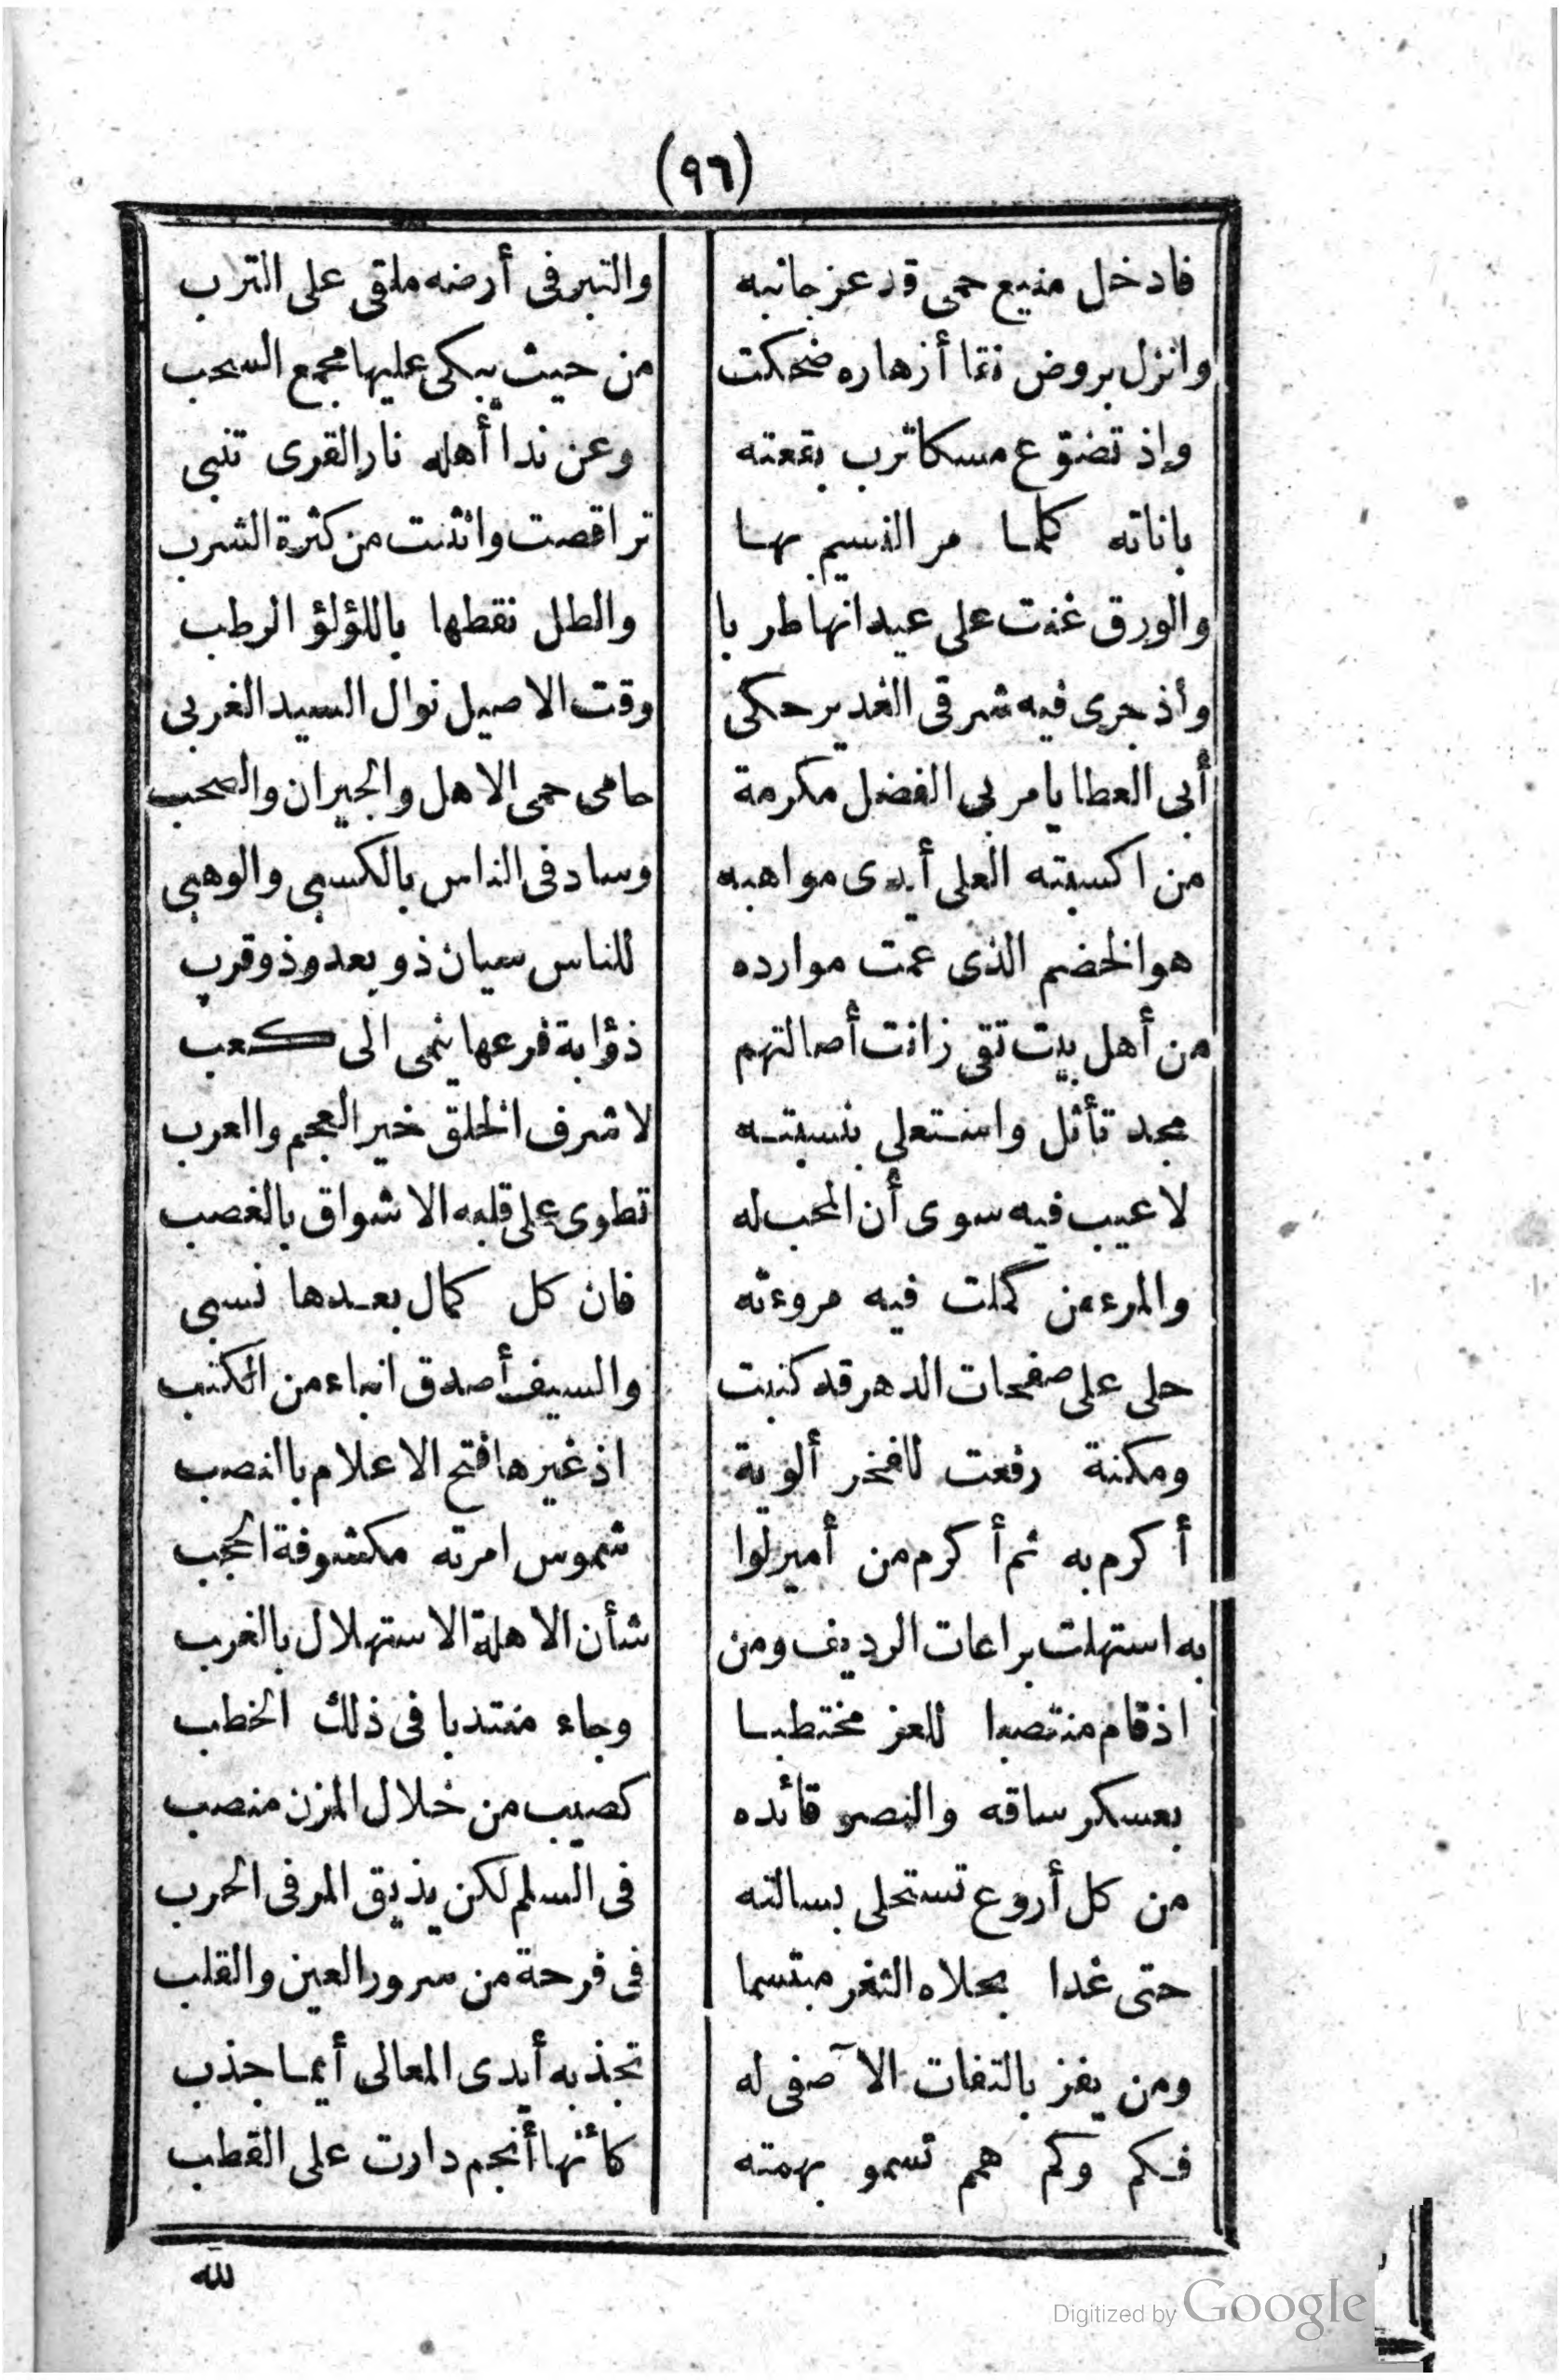 (٩٦)
فادخل منيع حمى قد عز جانبه والتبر فى أرضه ملقى على الترب
وانزل بروض نقا أزهاره ضحكت من حيث يبكى عليها مجمع السحب
وإذ تضوّع مسكا ترب بقعته وعن ندا أهله نار القرى تنبى
باناته كلما مر النسيم بها تراقصت وانثنت من كثرة الشرب
والورق غنت على عيدانها طربا والطل نقطها باللؤلؤ الرطب
وأذ جرى فيه شرقى الغدير حكى وقت الاصيل نوال السيد الغربى
أبى العطايا مربى الفضل مكرمة حامى حمى الاهل والجيران والصحب
من اكسبته العلى أيدى مواهبه وساد فى الناس بالكسبى والوهبى
هو الخضم الذى عمت موارده للناس سيان ذو بعد وذو قرب
من أهل بيت تقى زانت أصالتهم ذؤابة فرعها ينمى الى كعب
مجد تأثل واستعلى بنسبته لاشرف الخلق خير العجم والعرب
لا عيب فيه سوى أن المحب له تطوى على قلبه الاشواق بالغصب
والمرء من كملت فيه مروءته فان كل كمال بعدها نسبى
حلى على صفحات الدهر قد كتبت والسيف أصدق انباء من الكتب
ومكنة رفعت للفخر ألوية اذ غيرها فتح الاعلام بالنصب
أكرم به ثم أكرم من أمير لوا شموس امرته مكشوفة الحجب
به استهلت براعات الرديف ومن شأن الاهلة الاستهلال بالغرب
اذ قام منتصبا للعز مختطبا وجاء منتدبا فى ذلك الخطب
بعسكر ساقه والنصر قائده كصيب من خلال المزن منصب
من كل أروع تستحلى بسالته فى السلم لكن يذيق المر فى الحرب
حتى غدا بحلاه الثغر مبتسما فى فرحة من سرور العين والقلب
ومن يفز بالتفات الآصفى له تجذبه أيدى المعالى أيما جذب
فكم وكم همم تسمو بهمته كأنها أنجم دارت على القطب
لله
Digitized by Google